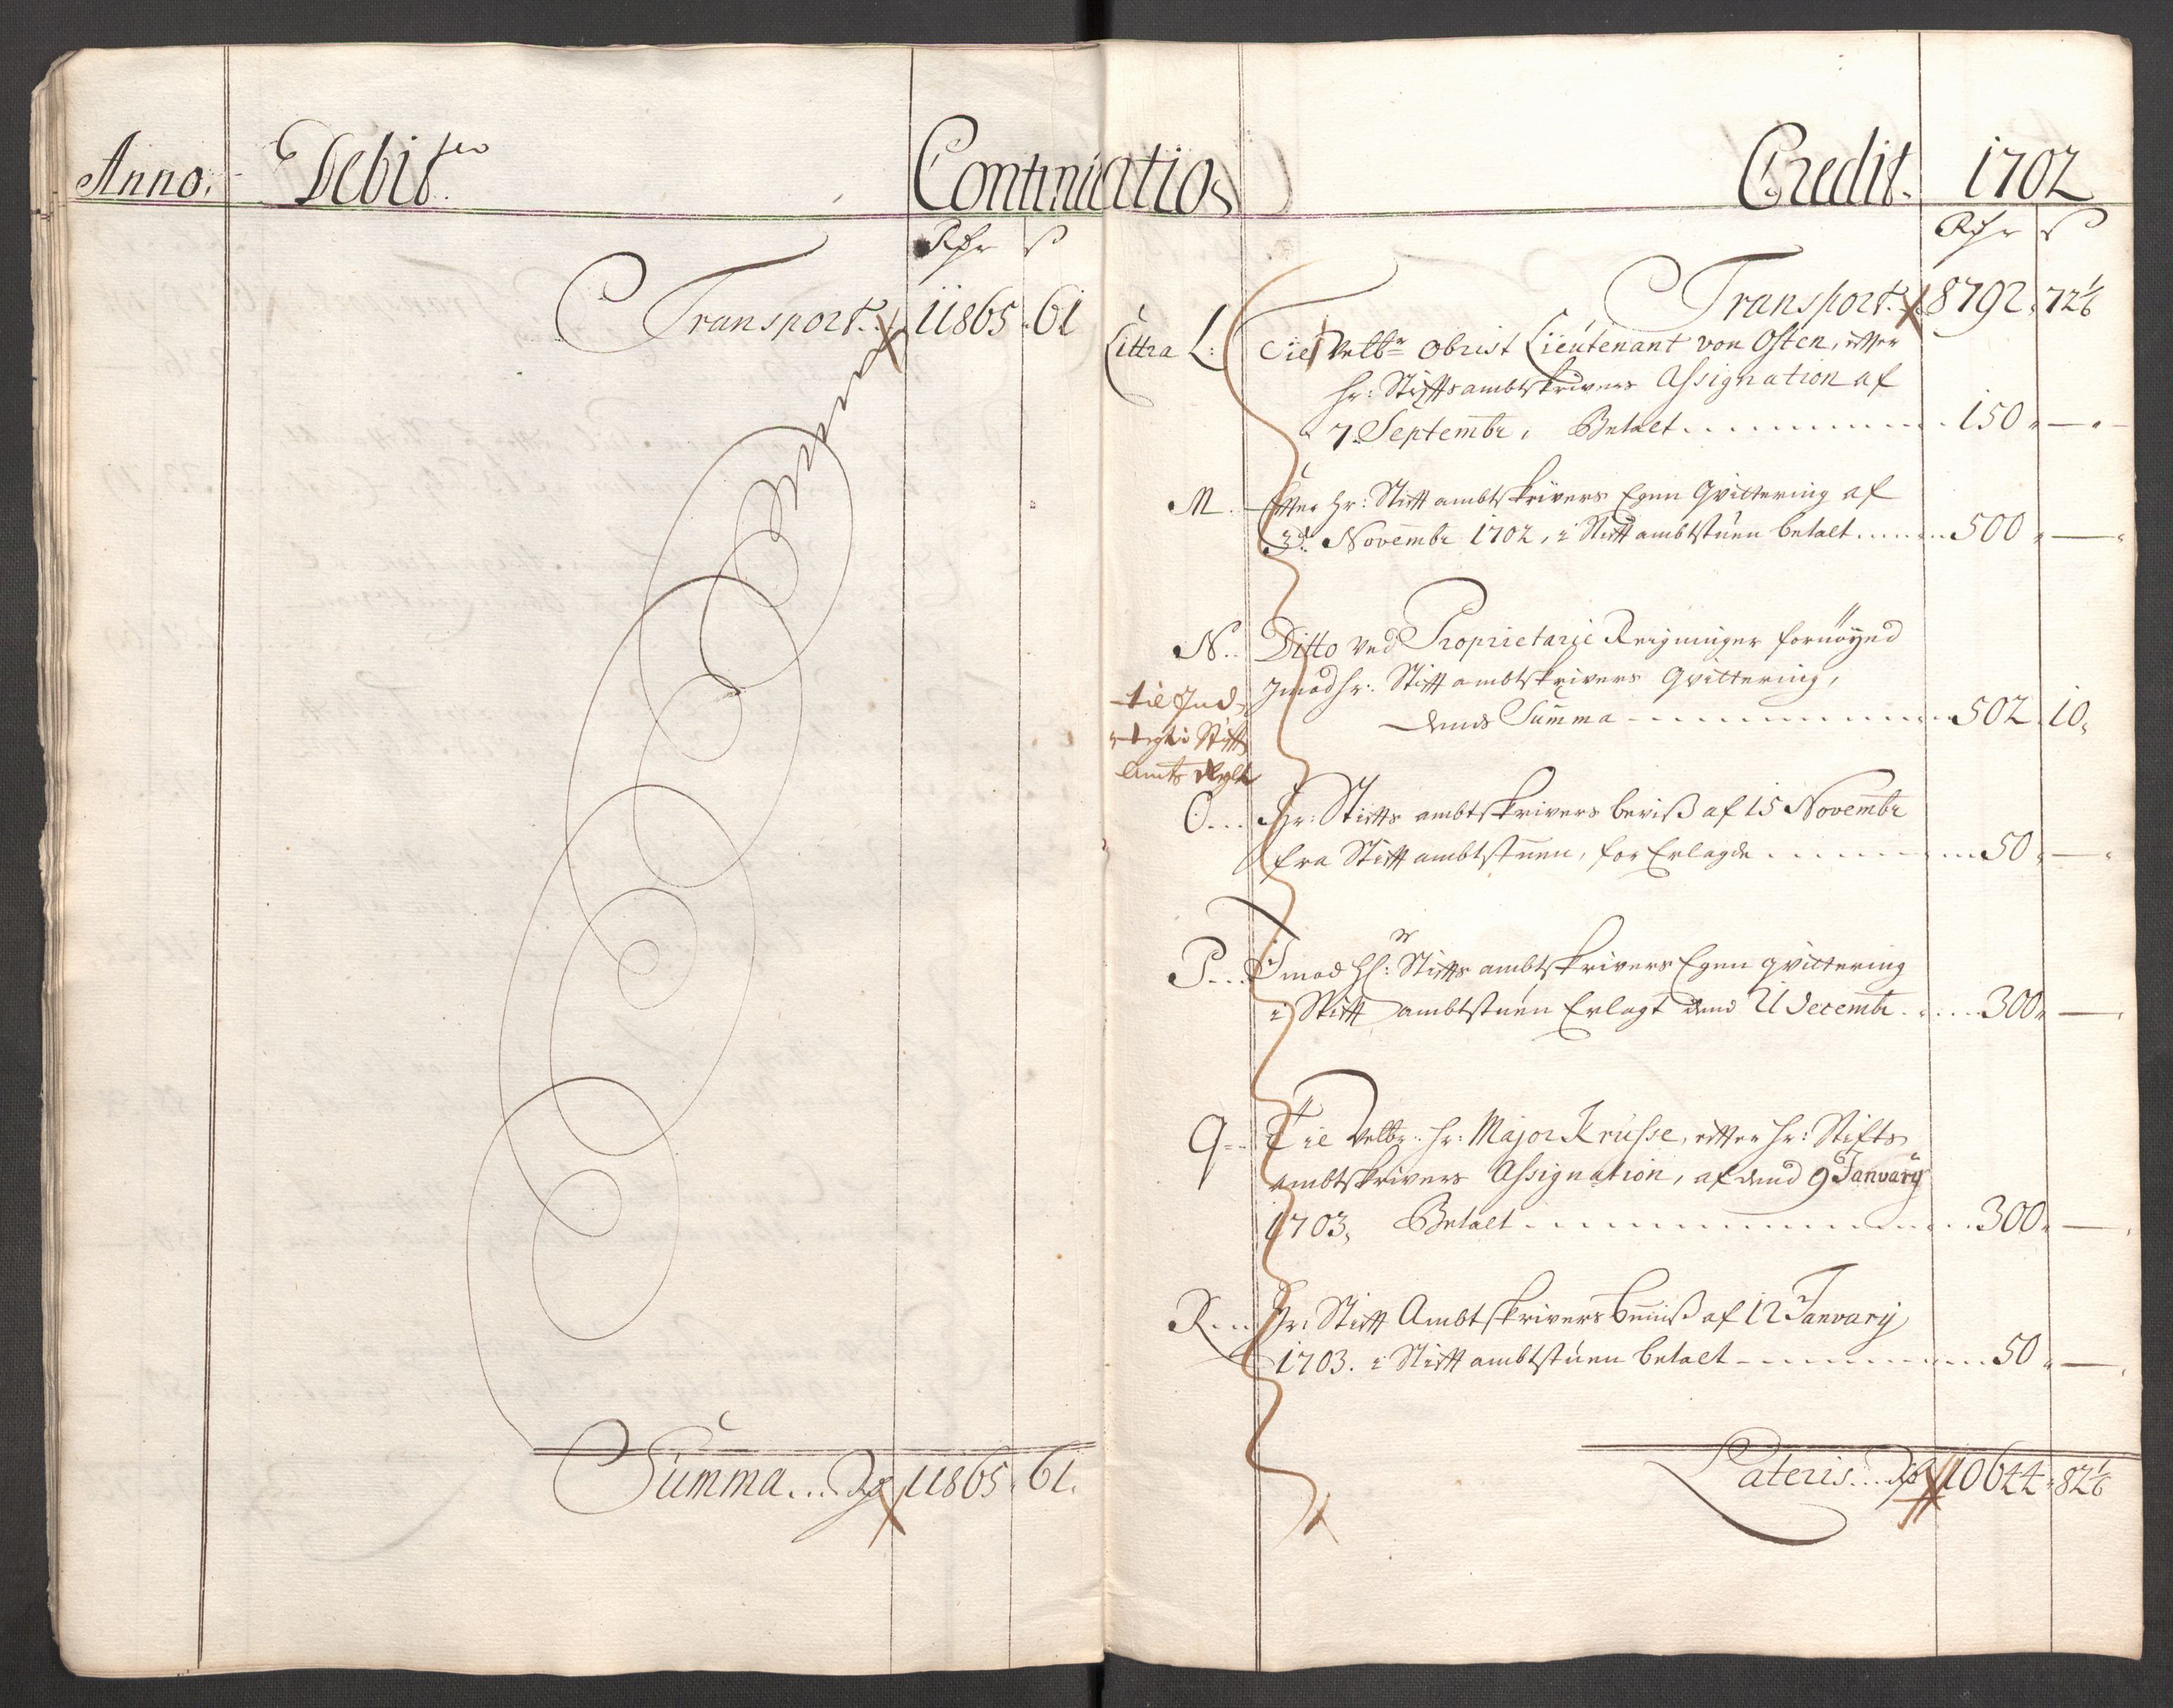 Anno.
Debit
Continuatio
Credit. 1702
Rdr ß
Transport. 11865 61
Summa... Rdr 11865. 61.
Rdr ß
Transport. 8792. 72 1/6
Littra L: Til Velbr Obrist Lieutenant von Osten, efter
hr: Stiftsambtskrivers Assignation af
7 Septembr, Betalt 150 -
M. Efter hr: Stiftambtskrivers Egen Qvittering af
3d. Novembr 1702, i Stiftambtstuen betalt 500 -
N. Ditto ved Proprietarie Reigninger fornøyed
Imod hr: Stiftambtskrivers Qvittering,
dends Summa 502. 10.
til Ind
i Stifts
Amts
O. Hr: Stifts ambtskrivers beviß af 15 Novembr
fra Stiftambtstuen, for Erlagde 50 -
P. Imod Hr: Stifts ambtskrivers Egen qvittering
i Stift ambtstuen Erlagt dend 21 Decembr 300 -
Q. Til Velbr. hr: Major Krusse, efter hr: Stifts
ambtskrivers Assignation, af dend 9 January
1703, Betalt 300 -
R. Hr: Stift Ambtskrivers beviiß af 12 January
1703. i Stiftambtstuen betalt 50 -
Lateris... Rdr 10644. 82 1/6